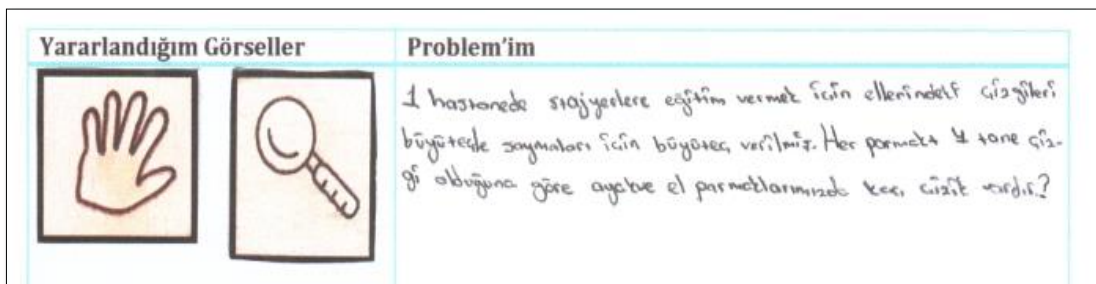 Yararlandığım Görseller
Problem'im
1 hastanede stajyerlere eğitim vermek için ellerindeki çizgileri
büyüteçle saymaları için büyüteç verilmiş. Her parmakta 4 tane çiz-
gi olduğuna göre ayak ve el parmaklarımızda kaç çizik vardır?